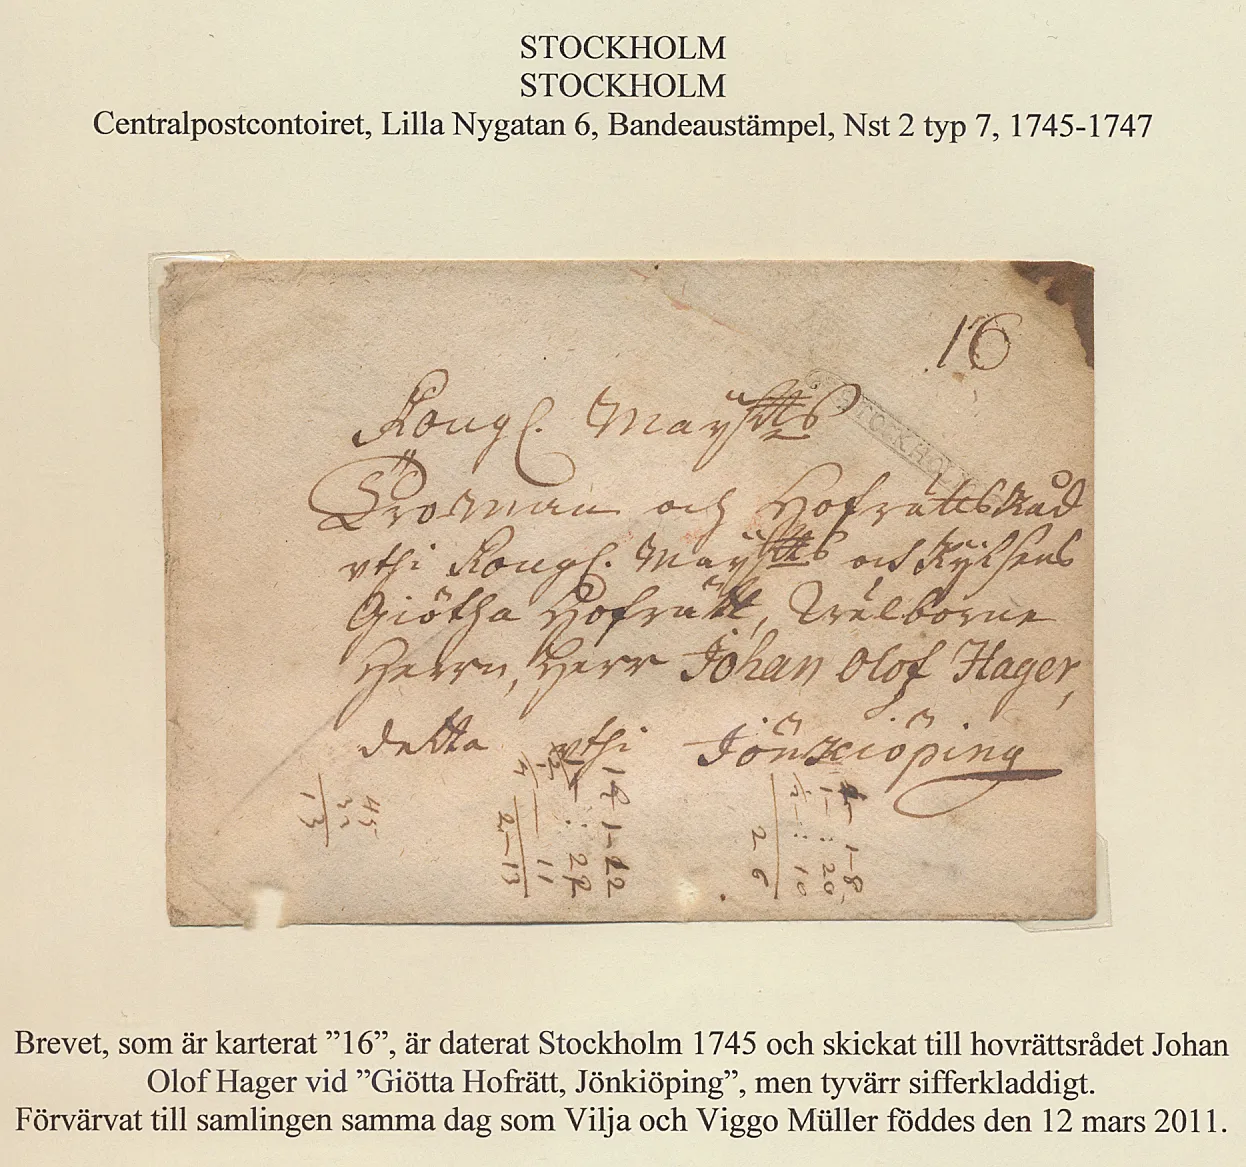 STOCKHOLM
STOCKHOLM
Centralpostcontoiret, Lilla Nygatan 6, Bandeaustämpel, Nst 2 typ 7, 1745-1747
16
STOCKHOLM
Kongl. Maÿtts
Troman och Hofrättsråd
uthi Kongl. Maÿtts och Rÿksens
Giötha Hofrätt, Wälborne
Herrn, Herr Johan Olof Hager,
detta uthi Jönkiöping
Brevet, som är karterat ”16”, är daterat Stockholm 1745 och skickat till hovrättsrådet Johan
Olof Hager vid ”Giötta Hofrätt, Jönkiöping”, men tyvärr sifferkladdigt.
Förvärvat till samlingen samma dag som Vilja och Viggo Müller föddes den 12 mars 2011.